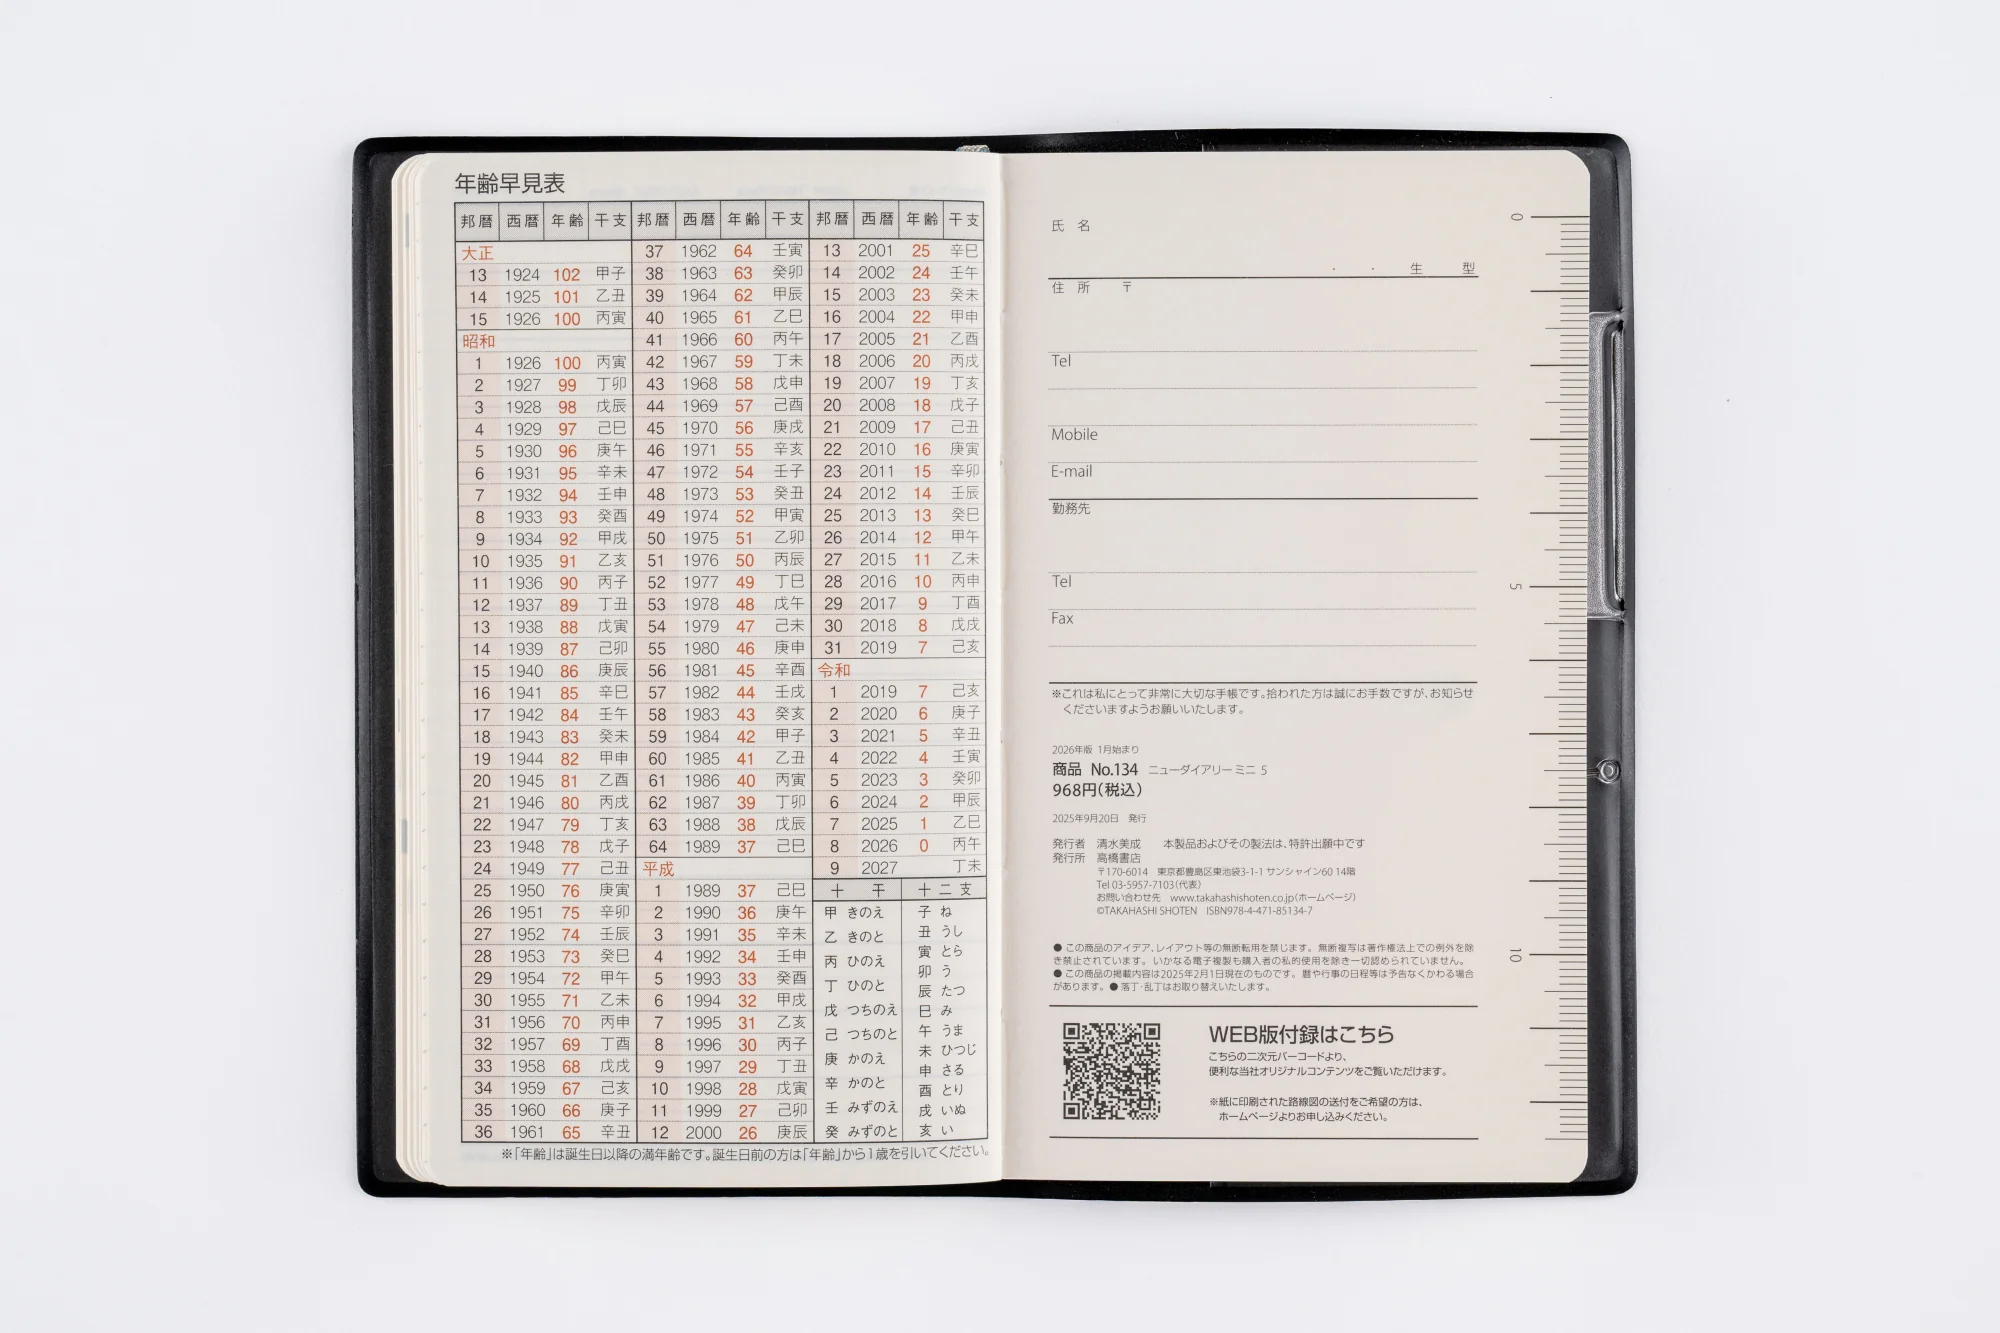 年齢早見表
邦暦 西暦 年齢 干支
大正
13 1924 102 甲子
14 1925 101 乙丑
15 1926 100 丙寅
昭和
1 1926 100 丙寅
2 1927 99 丁卯
3 1928 98 戊辰
4 1929 97 己巳
5 1930 96 庚午
6 1931 95 辛未
7 1932 94 壬申
8 1933 93 癸酉
9 1934 92 甲戌
10 1935 91 乙亥
11 1936 90 丙子
12 1937 89 丁丑
13 1938 88 戊寅
14 1939 87 己卯
15 1940 86 庚辰
16 1941 85 辛巳
17 1942 84 壬午
18 1943 83 癸未
19 1944 82 甲申
20 1945 81 乙酉
21 1946 80 丙戌
22 1947 79 丁亥
23 1948 78 戊子
24 1949 77 己丑
25 1950 76 庚寅
26 1951 75 辛卯
27 1952 74 壬辰
28 1953 73 癸巳
29 1954 72 甲午
30 1955 71 乙未
31 1956 70 丙申
32 1957 69 丁酉
33 1958 68 戊戌
34 1959 67 己亥
35 1960 66 庚子
36 1961 65 辛丑
邦暦 西暦 年齢 干支
37 1962 64 壬寅
38 1963 63 癸卯
39 1964 62 甲辰
40 1965 61 乙巳
41 1966 60 丙午
42 1967 59 丁未
43 1968 58 戊申
44 1969 57 己酉
45 1970 56 庚戌
46 1971 55 辛亥
47 1972 54 壬子
48 1973 53 癸丑
49 1974 52 甲寅
50 1975 51 乙卯
51 1976 50 丙辰
52 1977 49 丁巳
53 1978 48 戊午
54 1979 47 己未
55 1980 46 庚申
56 1981 45 辛酉
57 1982 44 壬戌
58 1983 43 癸亥
59 1984 42 甲子
60 1985 41 乙丑
61 1986 40 丙寅
62 1987 39 丁卯
63 1988 38 戊辰
64 1989 37 己巳
平成
1 1989 37 己巳
2 1990 36 庚午
3 1991 35 辛未
4 1992 34 壬申
5 1993 33 癸酉
6 1994 32 甲戌
7 1995 31 乙亥
8 1996 30 丙子
9 1997 29 丁丑
10 1998 28 戊寅
11 1999 27 己卯
12 2000 26 庚辰
邦暦 西暦 年齢 干支
13 2001 25 辛巳
14 2002 24 壬午
15 2003 23 癸未
16 2004 22 甲申
17 2005 21 乙酉
18 2006 20 丙戌
19 2007 19 丁亥
20 2008 18 戊子
21 2009 17 己丑
22 2010 16 庚寅
23 2011 15 辛卯
24 2012 14 壬辰
25 2013 13 癸巳
26 2014 12 甲午
27 2015 11 乙未
28 2016 10 丙申
29 2017 9 丁酉
30 2018 8 戊戌
31 2019 7 己亥
令和
1 2019 7 己亥
2 2020 6 庚子
3 2021 5 辛丑
4 2022 4 壬寅
5 2023 3 癸卯
6 2024 2 甲辰
7 2025 1 乙巳
8 2026 0 丙午
9 2027 丁未
十干
甲 きのえ
乙 きのと
丙 ひのえ
丁 ひのと
戊 つちのえ
己 つちのと
庚 かのえ
辛 かのと
壬 みずのえ
癸 みずのと
十二支
子 ね
丑 うし
寅 とら
卯 う
辰 たつ
巳 み
午 うま
未 ひつじ
申 さる
酉 とり
戌 いぬ
亥 い
※「年齢」は誕生日以降の満年齢です。誕生日前の方は「年齢」から1歳を引いてください。
氏 名
・ ・ 生 型
住 所 〒
Tel
Mobile
E-mail
勤務先
Tel
Fax
※これは私にとって非常に大切な手帳です。拾われた方は誠にお手数ですが、お知らせ
くださいますようお願いいたします。
2026年版 1月始まり
商品 No.134 ニューダイアリー ミニ 5
968円(税込)
2025年9月20日 発行
発行者 清水美成 本製品およびその製法は、特許出願中です
発行所 高橋書店
〒170-6014 東京都豊島区東池袋3-1-1 サンシャイン60 14階
Tel 03-5957-7103(代表)
お問い合わせ先 www.takahashishoten.co.jp(ホームページ)
©TAKAHASHI SHOTEN ISBN978-4-471-85134-7
● この商品のアイデア、レイアウト等の無断転用を禁じます。無断複写は著作権法上での例外を除
き禁止されています。いかなる電子複製も購入者の私的使用を除き一切認められていません。
● この商品の掲載内容は2025年2月1日現在のものです。暦や行事の日程等は予告なくかわる場合
があります。● 落丁・乱丁はお取り替えいたします。
WEB版付録はこちら
こちらの二次元バーコードより、
便利な当社オリジナルコンテンツをご覧いただけます。
※紙に印刷された路線図の送付をご希望の方は、
ホームページよりお申し込みください。
0
5
10